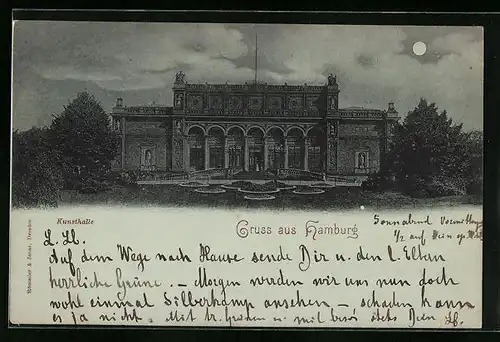 Kunsthalle
Gruss aus Hamburg
Sonnabend Vormittag
1/2 auf
L. Lb.
Auf dem Wege nach Hause sende Dir u. den l. Eltern
herrliche Grüße. – Morgen werden wir uns nun doch
wohl einmal Silberkamp ansehen – schaden kann
es ja nicht. Mit hr. Grüßen u. mil. stets Dein Lb.
Römmler & Jonas, Dresden